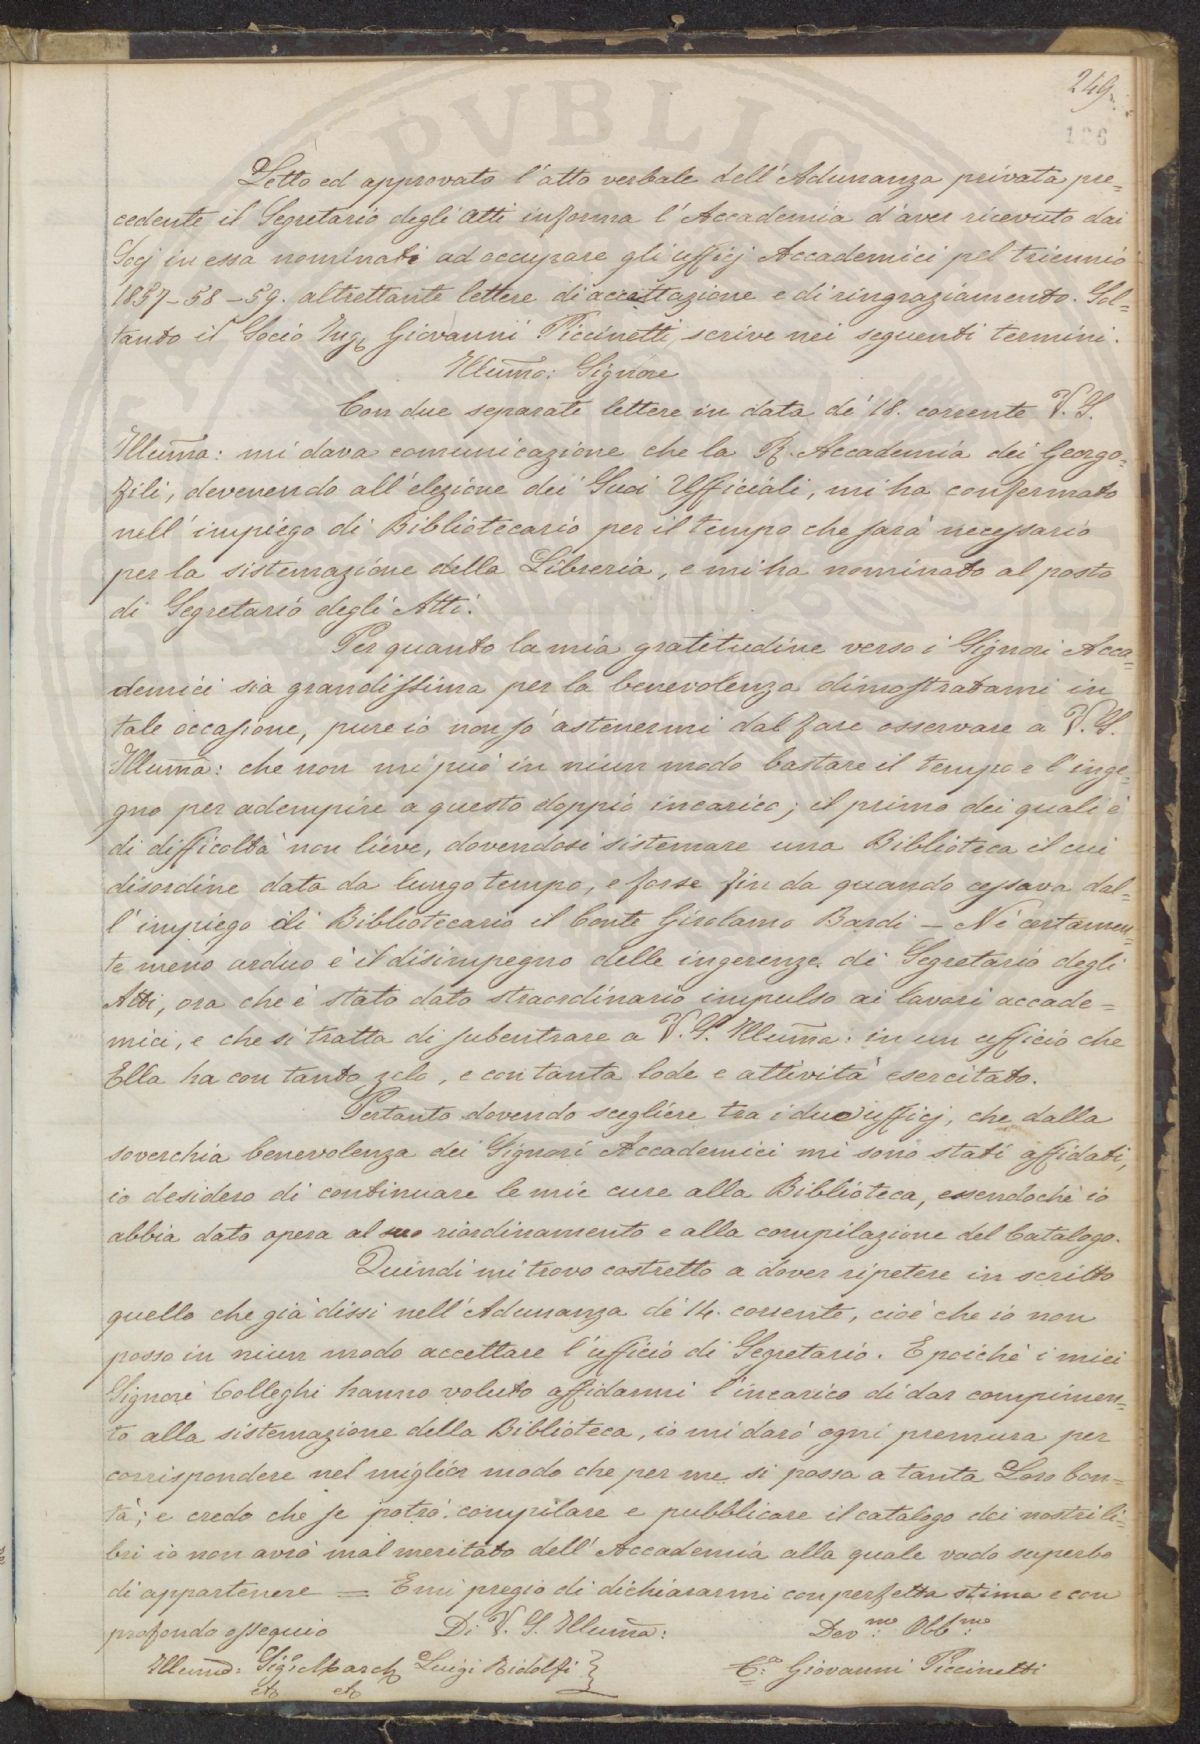 249
126
Letto ed approvato l'atto verbale dell'Adunanza privata pre=
cedente il Segretario degli Atti informa l'Accademia d'aver ricevuto dai
Socj in essa nominati ad occupare gli ufficj Accademici pel triennio
1857-58-59. altrettante lettere di accettazione e di ringraziamento. Sol=
tanto il Socio Ing. Giovanni Piccinetti scrive nei seguenti termini.
Illumo: Signore
Con due separate lettere in data de' 18. corrente V. S.
Illuma: mi dava comunicazione che la R. Accademia dei Georgo=
fili, devenendo all'elezione dei Suoi Ufficiali, mi ha confermato
nell'impiego di Bibliotecario per il tempo che sarà necessario
per la sistemazione della Libreria, e mi ha nominato al posto
di Segretario degli Atti.
Per quanto la mia gratitudine verso i Signori Acca=
demici sia grandissima per la benevolenza dimostratami in
tale occasione, pure io non so astenermi dal fare osservare a V. S.
Illuma: che non mi può in niun modo bastare il tempo e l'inge=
gno per adempire a questo doppio incarico; il primo dei quali è
di difficoltà non lieve, dovendosi sistemare una Biblioteca il cui
disordine data da lungo tempo, e forse fin da quando cessava dal=
l'impiego di Bibliotecario il Conte Girolamo Bardi – Nè certamen=
te meno arduo è il disimpegno delle ingerenze di Segretario degli
Atti, ora che è stato dato straordinario impulso ai lavori accade=
mici, e che si tratta di subentrare a V. S. Illuma: in un ufficio che
Ella ha con tanto zelo, e con tanta lode e attività esercitato.
Pertanto dovendo scegliere tra i due ufficj, che dalla
soverchia benevolenza dei Signori Accademici mi sono stati affidati,
io desidero di continuare le mie cure alla Biblioteca, essendochè io
abbia dato opera al suo riordinamento e alla compilazione del Catalogo.
Quindi mi trovo costretto a dover ripetere in scritto
quello che già dissi nell'Adunanza de' 14. corrente, cioè che io non
posso in niun modo accettare l'ufficio di Segretario. E poichè i miei
Signori Colleghi hanno voluto affidarmi l'incarico di dar compimen=
to alla sistemazione della Biblioteca, io mi darò ogni premura per
corrispondere nel miglior modo che per me si possa a tanta Loro bon=
tà; e credo che se potrò compilare e pubblicare il catalogo dei nostri li=
bri io non avrò mal meritato dell'Accademia alla quale vado superbo
di appartenere = E mi pregio di dichiararmi con perfetta stima e con
profondo ossequio Di V. S. Illuma: Devmo: Obbmo:
Illumo: Sige. March. Luigi Ridolfi } Giovanni Piccinetti